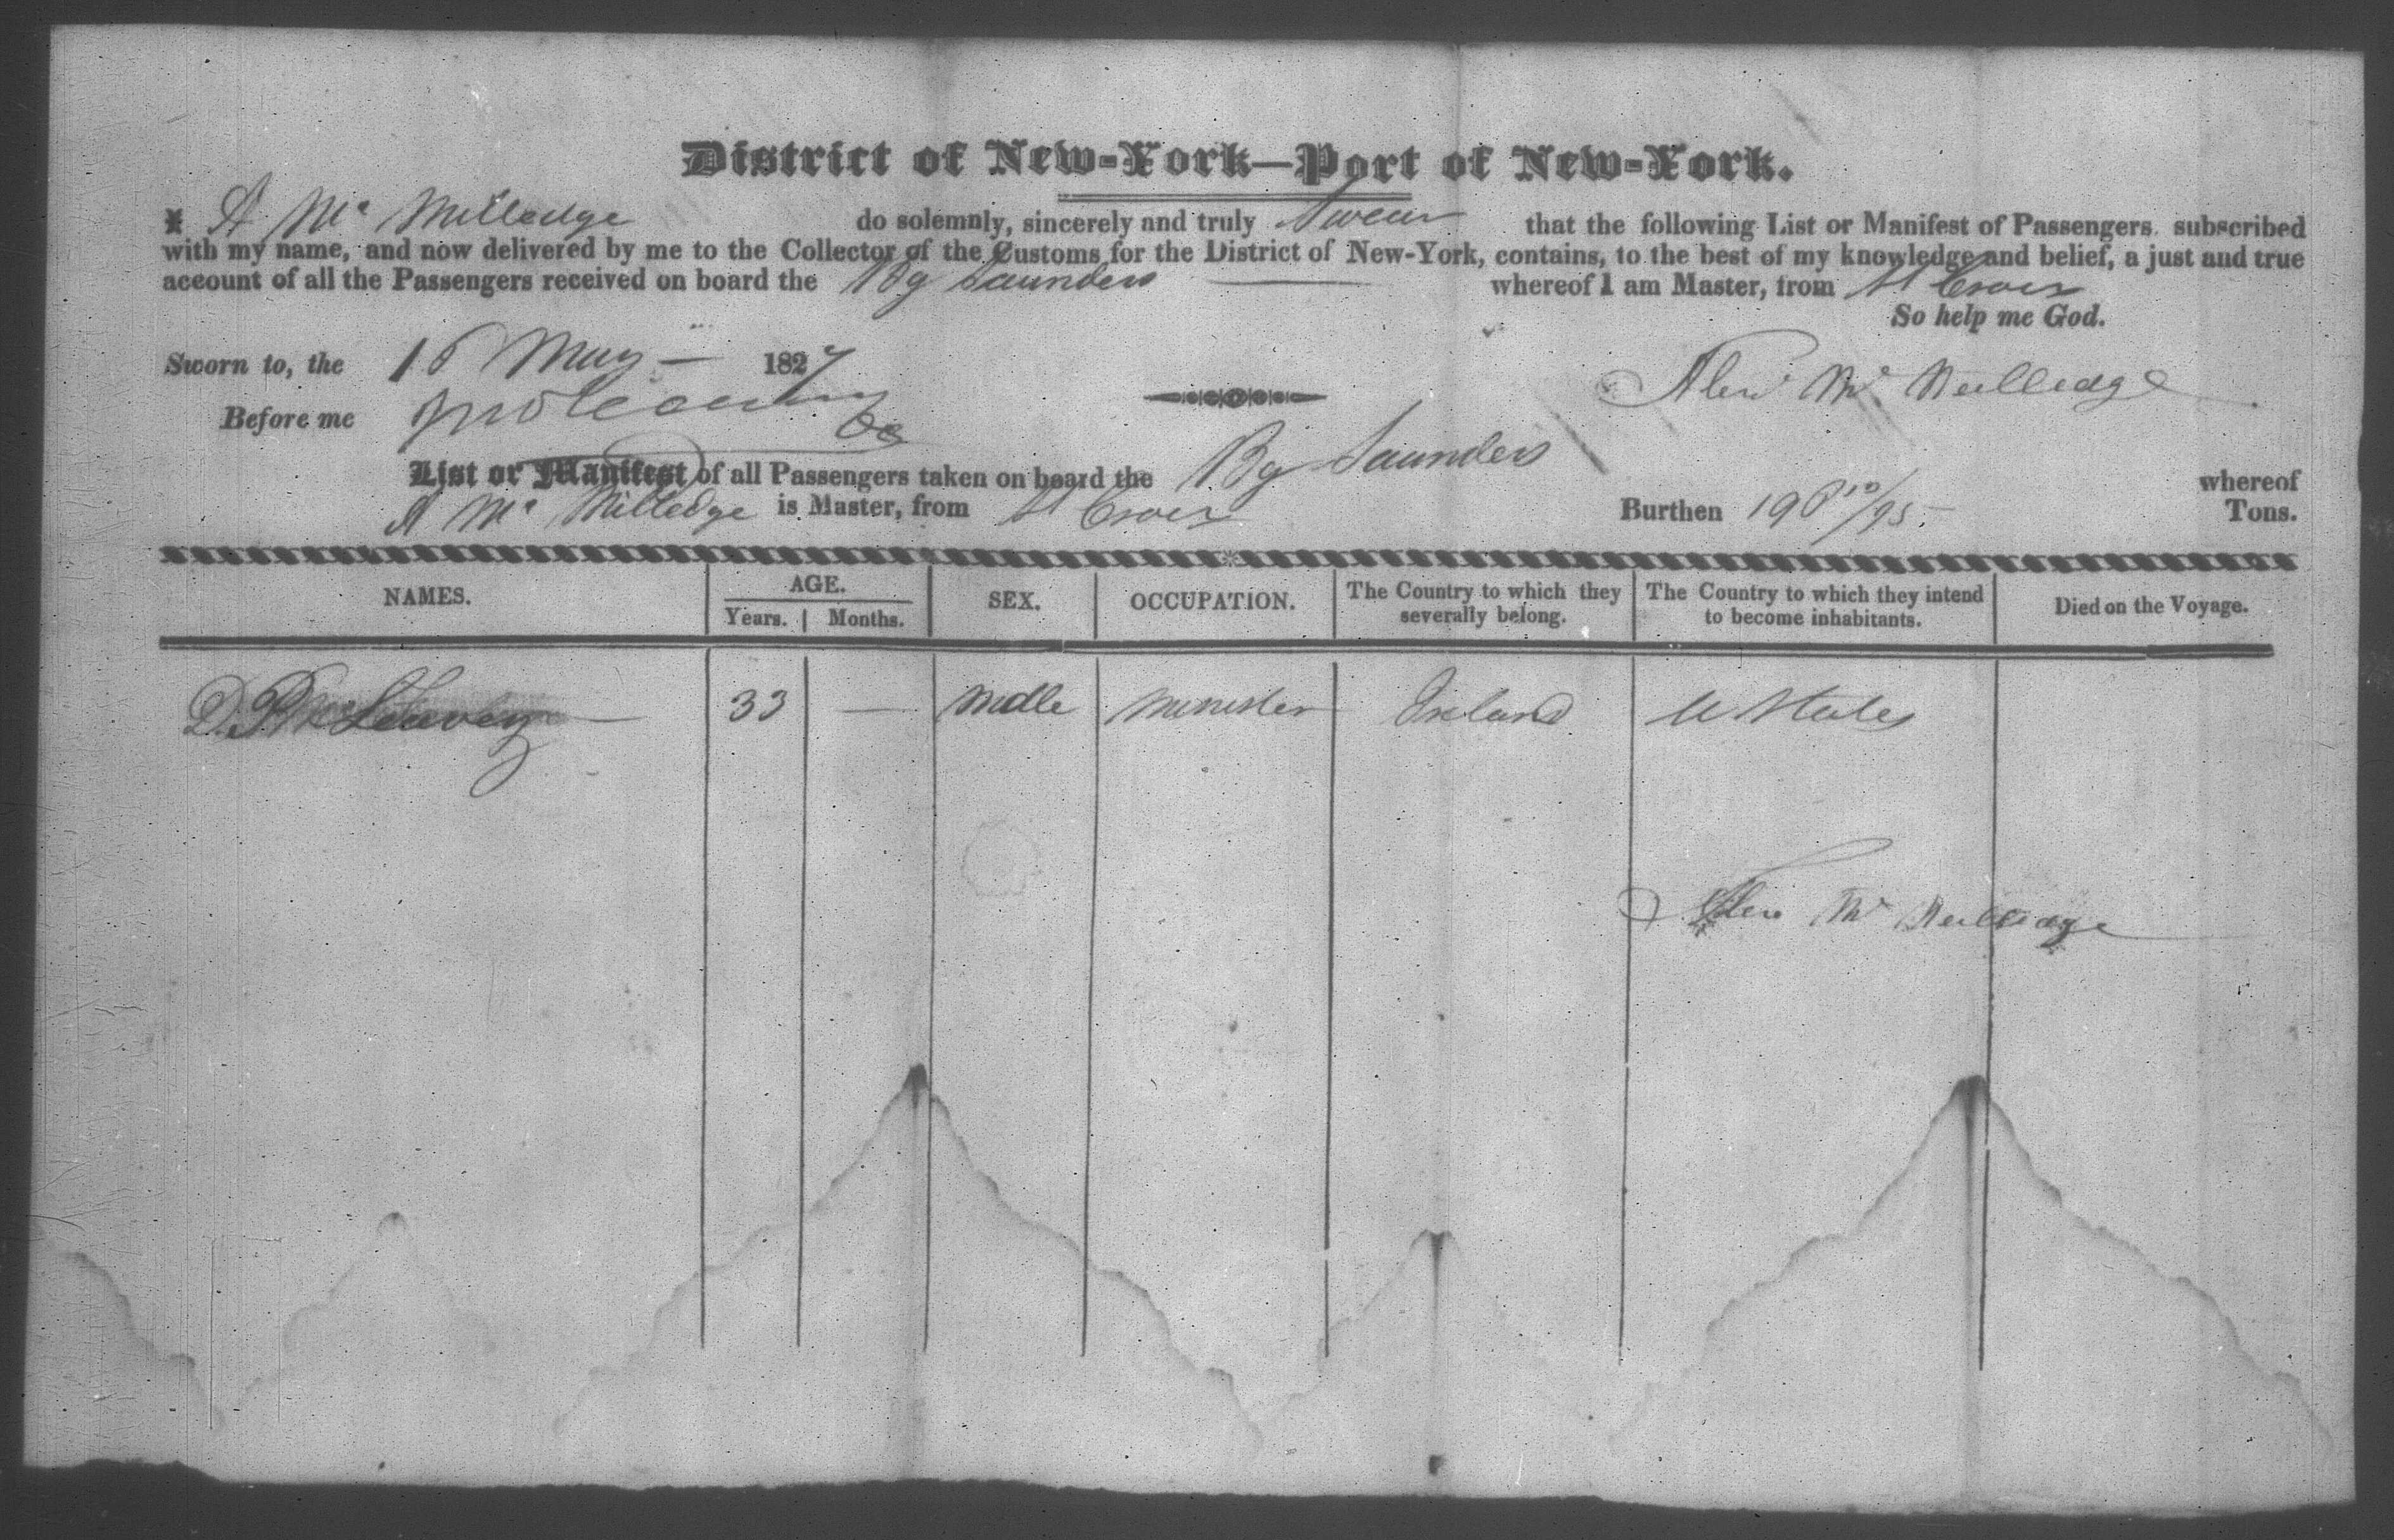 District of New-York—Port of New-York.
I A Mc Milledge do solemnly, sincerely and truly Swear that the following List or Manifest of Passengers subscribed
with my name, and now delivered by me to the Collector of the Customs for the District of New-York, contains, to the best of my knowledge and belief, a just and true
account of all the Passengers received on board the Bg Saunders whereof I am Master, from St Croix
So help me God.
Sworn to, the 15 May 1827
Alexr Mc Neilledge
Before me
List or Manifest of all Passengers taken on board the Bg Saunders whereof
A Mc Milledge is Master, from St Croix Burthen 196 10/95 Tons.
NAMES. AGE. Years. Months. SEX. OCCUPATION. The Country to which they severally belong. The Country to which they intend to become inhabitants. Died on the Voyage.
33 — Male Minister Ireland U States
Alexr Mc Neilledge